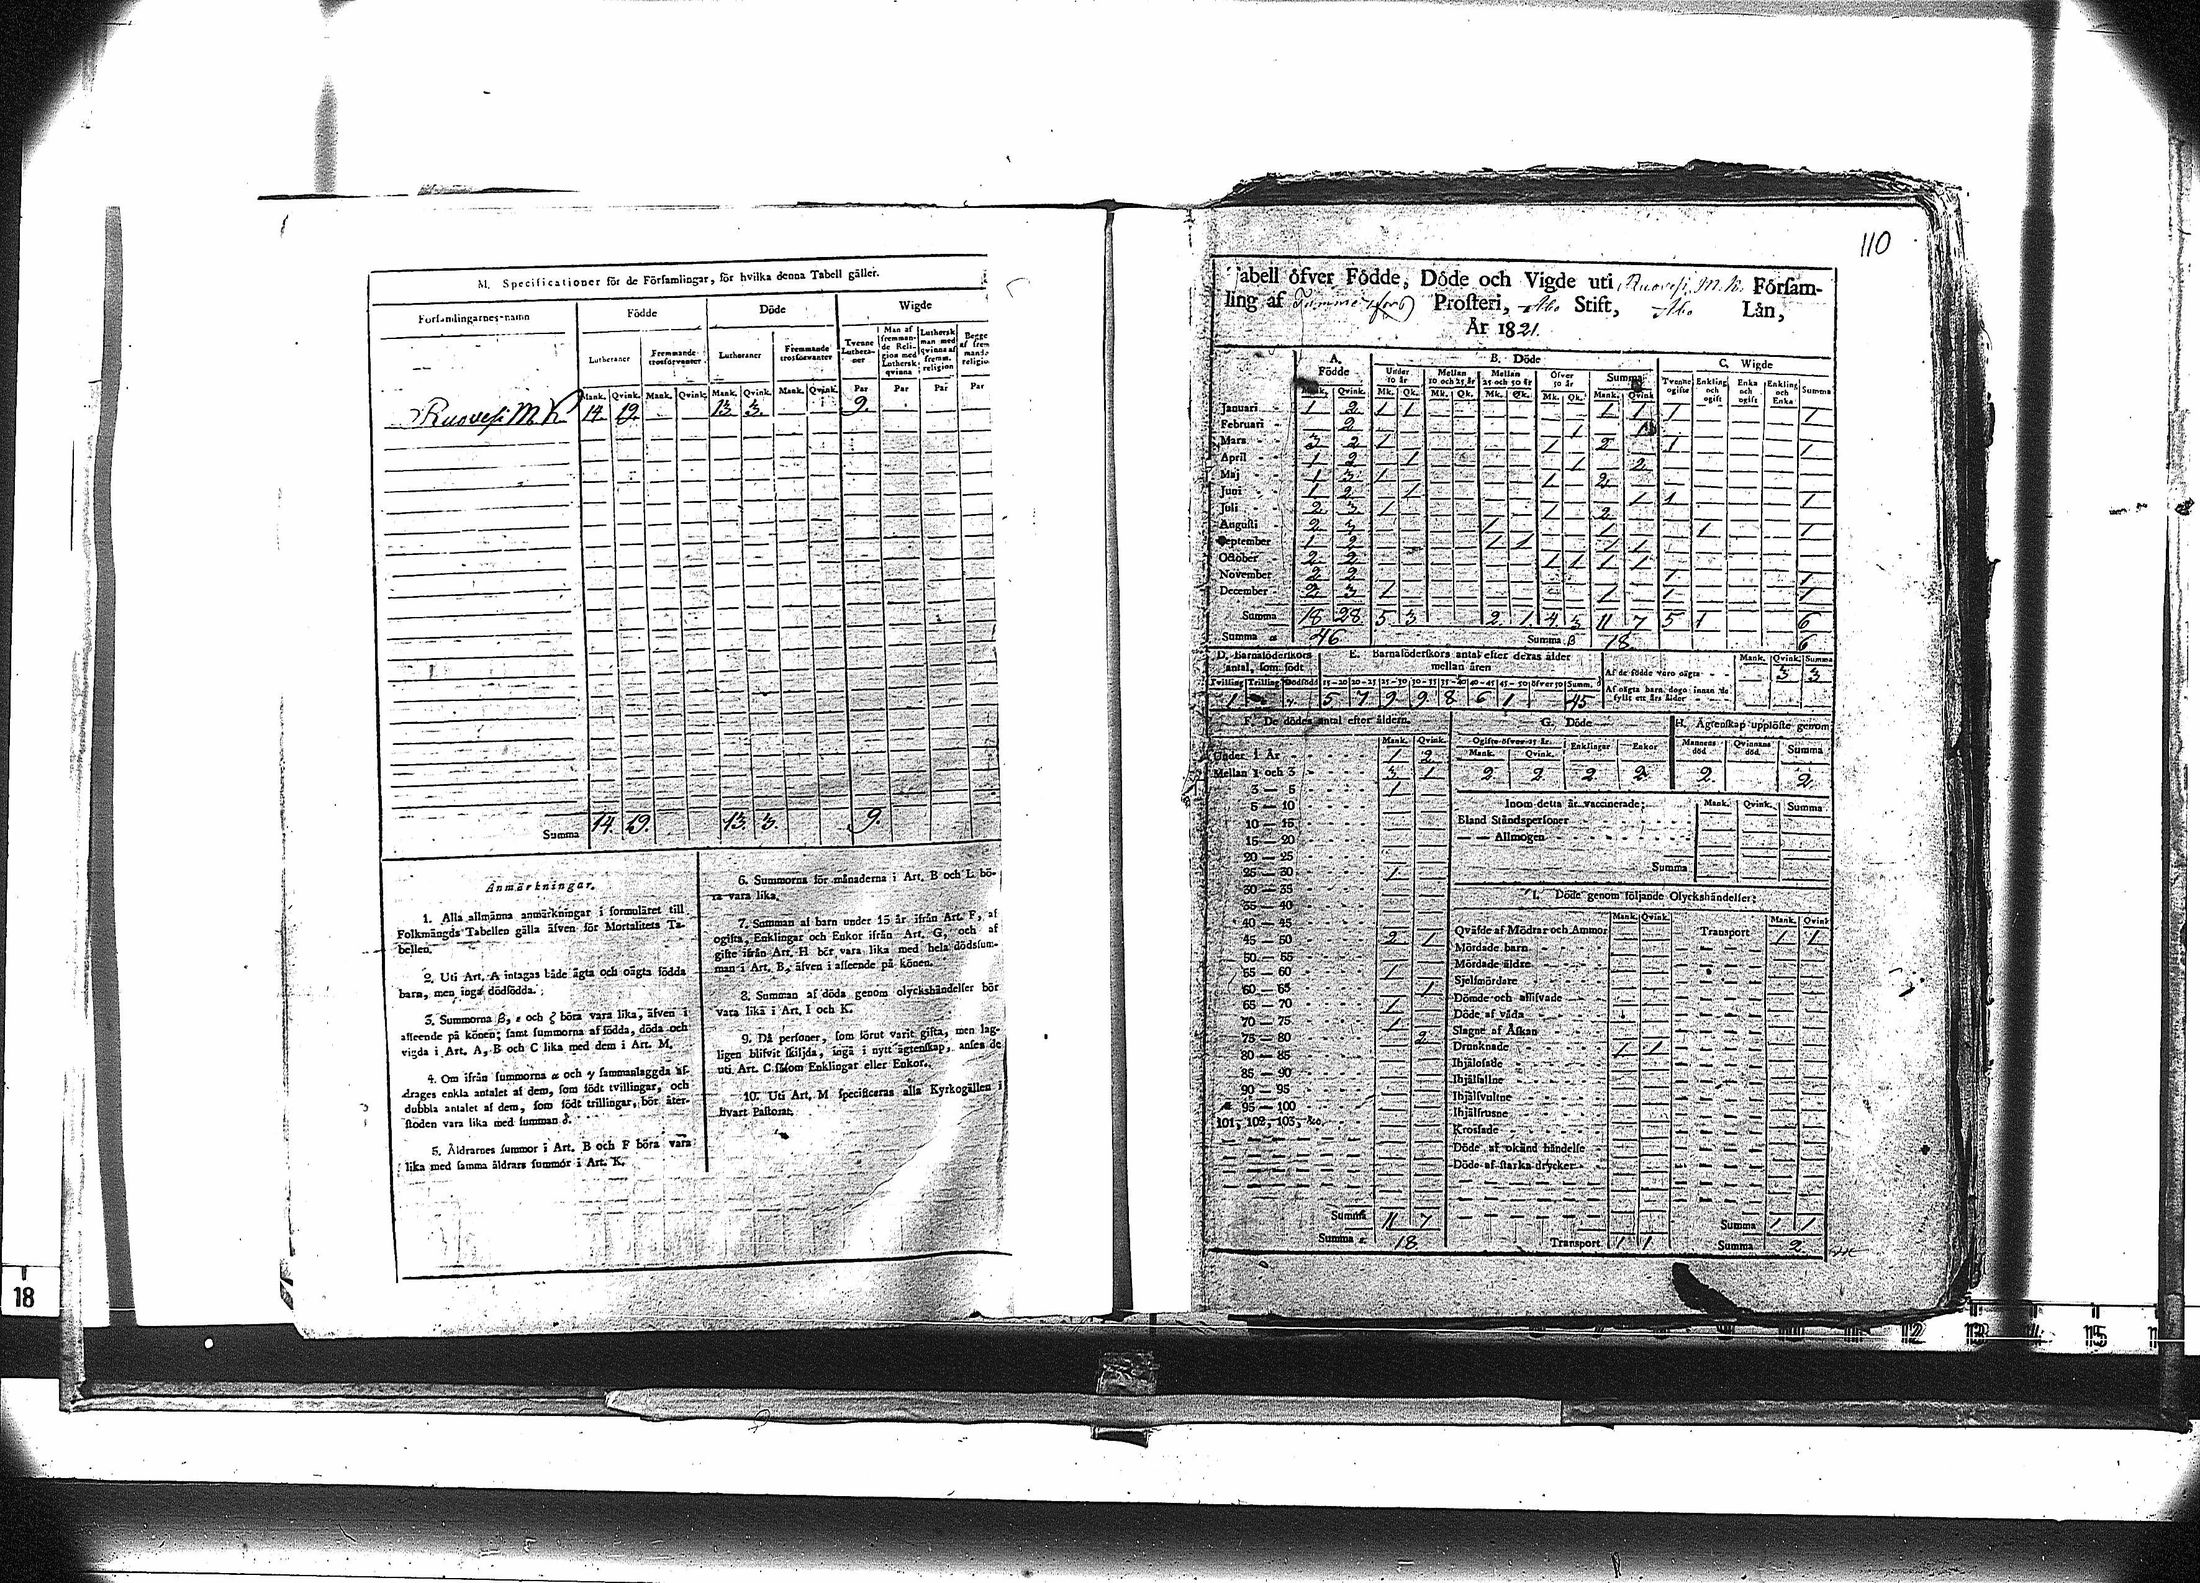 M. Specificationer för de Församlingar, för hvilka denna Tabell gäller.
Församlingarnes-namn
Födde
Döde
Wigde
Lutheraner
Fremmande trosförvanter
Lutheraner
Fremmande trosförvanter
Tvenne Lutheraner
Man af fremmande Religion med Luthersk qvinna
Luthersk man med qvinna af fremm. religion
Mank. Qvink. Mank. Qvink. Mank. Qvink. Mank. Qvink. Par Par Par Par
Ruovesi M. K. 14 19. 13 3. 9.
Summa 14. 19. 13. 3. 9.
Anmärkningar.
1. Alla allmänna anmärkningar i formuläret till
Folkmängds Tabellen gälla äfven för Mortalitets Ta-
bellen.
2. Uti Art. A intagas både ägta och oägta födda
barn, men inga dödfödda.
3. Summorna β, ε och ζ böra vara lika, äfven i
afseende på könen; samt summorna af födda, döda och
vigda i Art. A, B och C lika med dem i Art. M.
4. Om ifrån summorna α och γ sammanlaggda af-
drages enkla antalet af dem, som födt tvillingar, och
dubbla antalet af dem, som födt trillingar, bör åter-
stoden vara lika med summan δ.
5. Åldrarnes summor i Art. B och F böra vara
lika med samma åldrars summor i Art. K.
6. Summorna för månaderna i Art. B och L bö-
ra vara lika.
7. Summan af barn under 15 år ifrån Art. F, af
ogifta, Enklingar och Enkor ifrån Art. G, och af
gifte ifrån Art. H bör vara lika med hela dödssum-
man i Art. B, äfven i afseende på könen.
8. Summan af döda genom olyckshändelser bör
vara lika i Art. I och K.
9. Då personer, som förut varit gifta, men lag-
ligen blifvit skiljda, ingå i nytt ägtenskap, anses de
uti Art. C såsom Enklingar eller Enkor.
10. Uti Art. M specificeras alla Kyrkogällen i
hvart Pastorat.
110
Tabell öfver Födde, Döde och Vigde uti Ruovesi M. K. Församling
ling af Tammerfors Prosteri, Åbo Stift, Åbo Län,
År 1821.
A. Födde
B. Döde
C. Wigde
Under 10 år
Mellan 10 och 25 år
Mellan 25 och 50 år
Öfver 50 år
Summa
Tvenne ogifte
Enkling och ogift
Enka och ogift
Enkling och Enka
Summa
Mank. Qvink. Mk. Qk. Mk. Qk. Mk. Qk. Mk. Qk. Mank. Qvink
Januari 1 2 1 1 1 1 1 1
Februari 2 1 1
Mars 3 2 1 1 2 1 1
April 1 2 1 1 2
Maj 1 3 1 1 2
Juni 1 2 1 1 1 1
Juli 2 3 1 1 2
Augusti 2 3 1 1 1 1
September 1 2 1 1 1 1
October 2 2 1 1 1 1
November 2 2 1 1
December 2 3 1 1 1 1
Summa 18 28 5 3 2 1 4 3 11 7 5 1 6
Summa α 46 Summa β 18 6
D. Barnaföderskors antal, som födt
E. Barnaföderskors antal efter deras ålder mellan åren
Mank. Qvink. Summa
Tvilling Trilling Dödfödt 15-20 20-25 25-30 30-35 35-40 40-45 45-50 öfver 50 Summ. δ
1 5 7 9 9 8 6 1 45
Af de födde voro oägta 3 3
Af oägta barn dogo innan de fyllt ett års ålder
F. De dödes antal efter åldern.
Mank. Qvink.
Under 1 År 1 2
Mellan 1 och 3 3 1
3 — 5 1
5 — 10
10 — 15
15 — 20
20 — 25
25 — 30 1
30 — 35
35 — 40
40 — 45
45 — 50 2 1
50 — 55
55 — 60 1
60 — 65 1
65 — 70 1
70 — 75 1
75 — 80 2
80 — 85
85 — 90
90 — 95
95 — 100
101, 102, 103, &c.
Summa 11 7
Summa ε 18
G. Döde
Ogifte öfver 15 år.
Enklingar
Enkor
Mank. Qvink.
2 2 2 2
H. Ägtenskap upplöste genom
Mannens död
Qvinnans död
Summa
2 2
Inom detta år vaccinerade: Mank. Qvink. Summa
Bland Ståndspersoner
— — Allmogen
Summa
I. Döde genom följande Olyckshändelser:
Mank. Qvink. Mank. Qvink
Qväfde af Mödrar och Ammor
Transport 1 1
Mördade barn
Mördade äldre
Sjelfmördare
Dömde och aflifvade
Döde af våda
Slagne af Åskan
Drunknade 1 1
Ihjälosade
Ihjälfallne
Ihjälsvultne
Ihjälfrusne
Krossade
Döde af okänd händelse
Döde af starka drycker
Transport 1 1
Summa 1 1
Summa 2
18
12 13 14 15